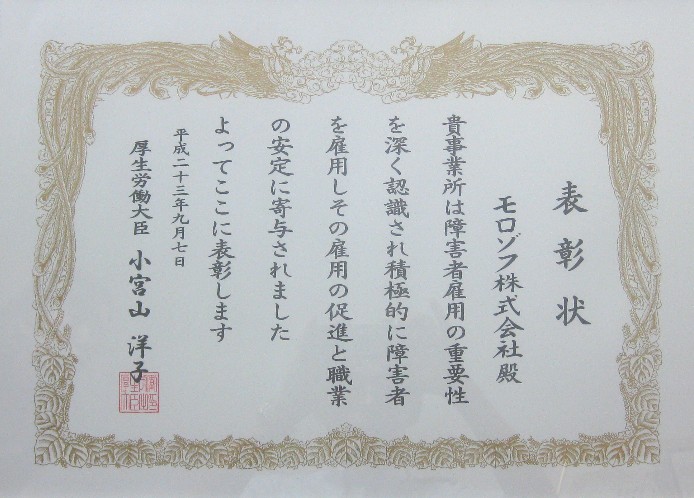 表彰状
モロゾフ株式会社殿
貴事業所は障害者雇用の重要性
を深く認識され積極的に障害者
を雇用しその雇用の促進と職業
の安定に寄与されました
よってここに表彰します
平成二十三年九月七日
厚生労働大臣 小宮山 洋子